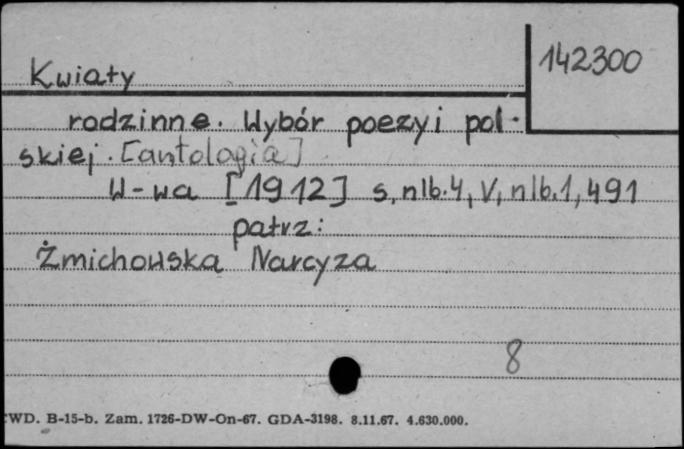 142300
Kwiaty
rodzinne. Wybór poezyi pol-
skiej. [antologia]
W-wa [1912] s. nlb. 4, V, nlb. 1, 491
patrz:
Żmichowska Narcyza
8
WD. B-15-b. Zam. 1726-DW-On-67. GDA-3198. 8.11.67. 4.630.000.